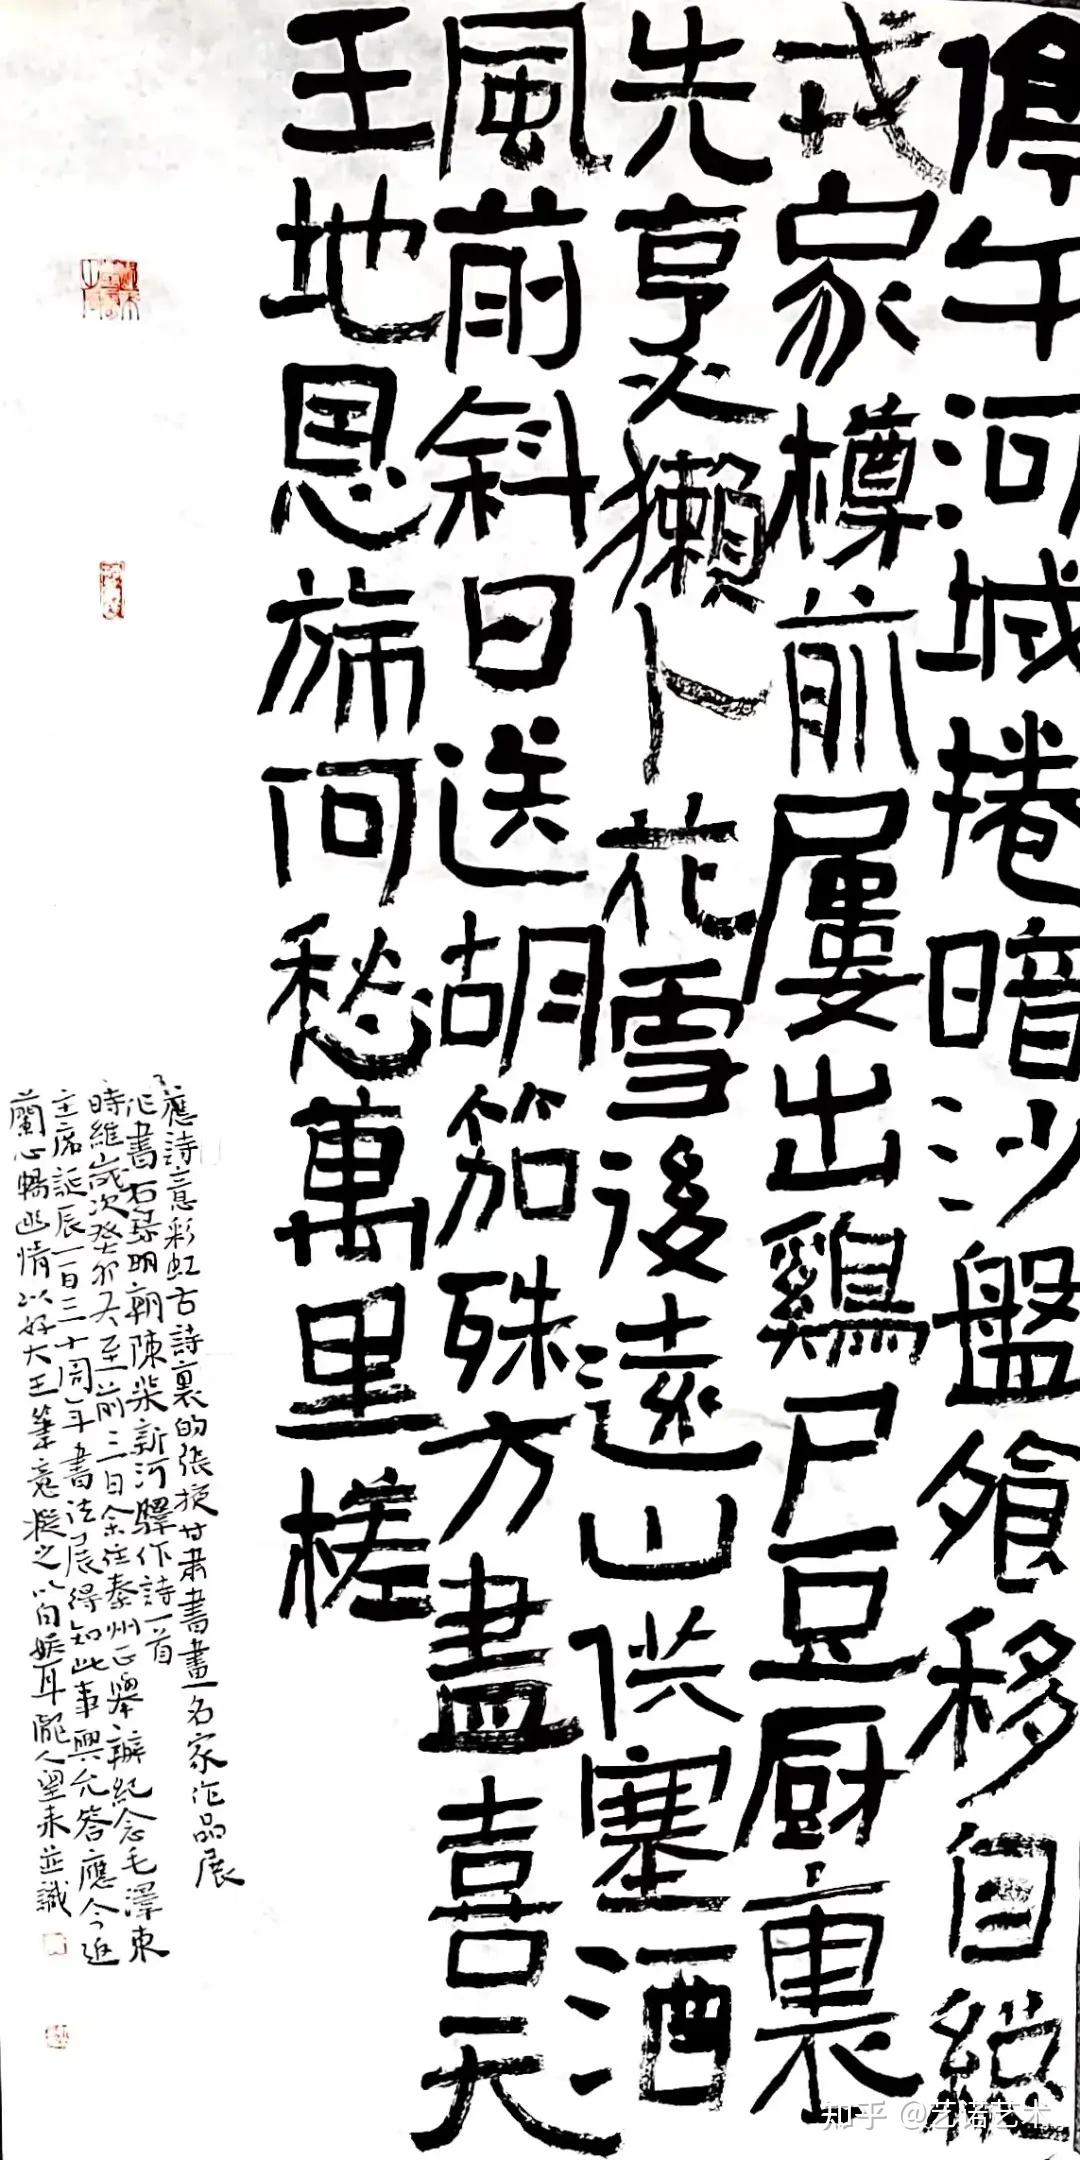 停午河城捲暗沙盤飱移自総
戎家樽前屢出鷄尸豆厨裏
先烹獺卜花雪後遠山供塞酒
風前斜日送胡笳殊方盡喜天
王地恩旆何愁萬里槎
應詩意彩虹古詩裏的張掖甘肅書畫名家作品展
作書石琢明朝陳棐新河驛作詩一首
時維歲次癸卯冬至前三日余往秦州正舉辦紀念毛澤東
主席誕辰一百三十周年書法展得知此事興允答應今返
蘭心暢幽情以好大王筆意擬之以自娱耳隴人望未並識
知乎 @艺诺艺术